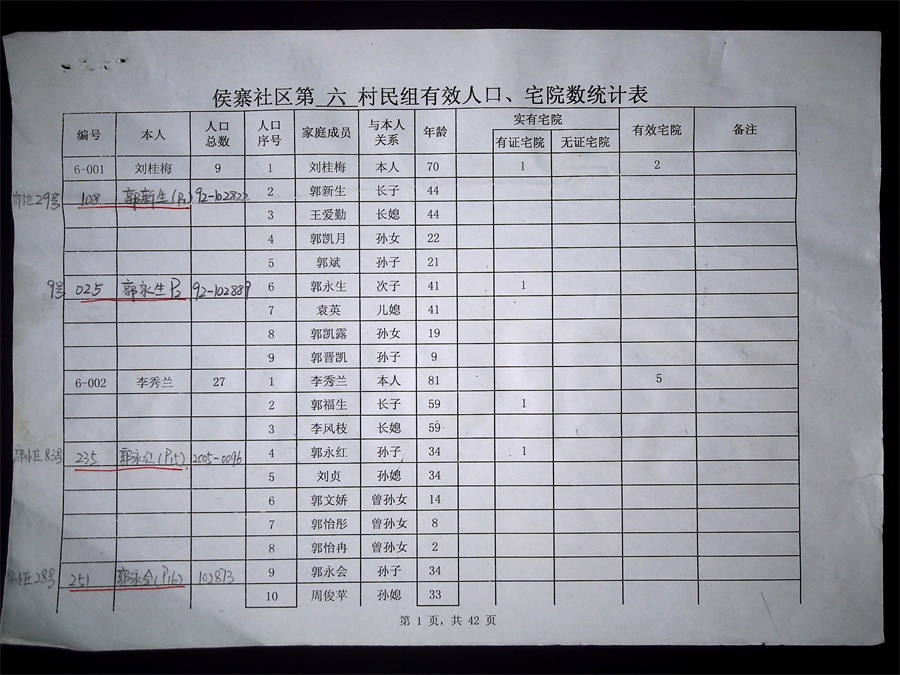 侯寨社区第 六 村民组有效人口、宅院数统计表
编号 本人 人口总数 人口序号 家庭成员 与本人关系 年龄 实有宅院 有证宅院 无证宅院 有效宅院 备注
6-001 刘桂梅 9 1 刘桂梅 本人 70 1 2
29号 108 郭新生(P1) 92-102822 2 郭新生 长子 44
3 王爱勤 长媳 44
4 郭凯月 孙女 22
5 郭斌 孙子 21
9号 025 郭永生 P2 92-102889 6 郭永生 次子 41 1
7 袁英 儿媳 41
8 郭凯露 孙女 19
9 郭晋凯 孙子 9
6-002 李秀兰 27 1 李秀兰 本人 81 5
2 郭福生 长子 59 1
3 李风枝 长媳 59
83号 235 郭永红(P15) 2005-0096 4 郭永红 孙子 34 1
5 刘贞 孙媳 34
6 郭文娇 曾孙女 14
7 郭怡彤 曾孙女 8
8 郭怡冉 曾孙女 2
28号 251 郭永会(P16) 102873 9 郭永会 孙子 34
10 周俊苹 孙媳 33
第 1 页，共 42 页